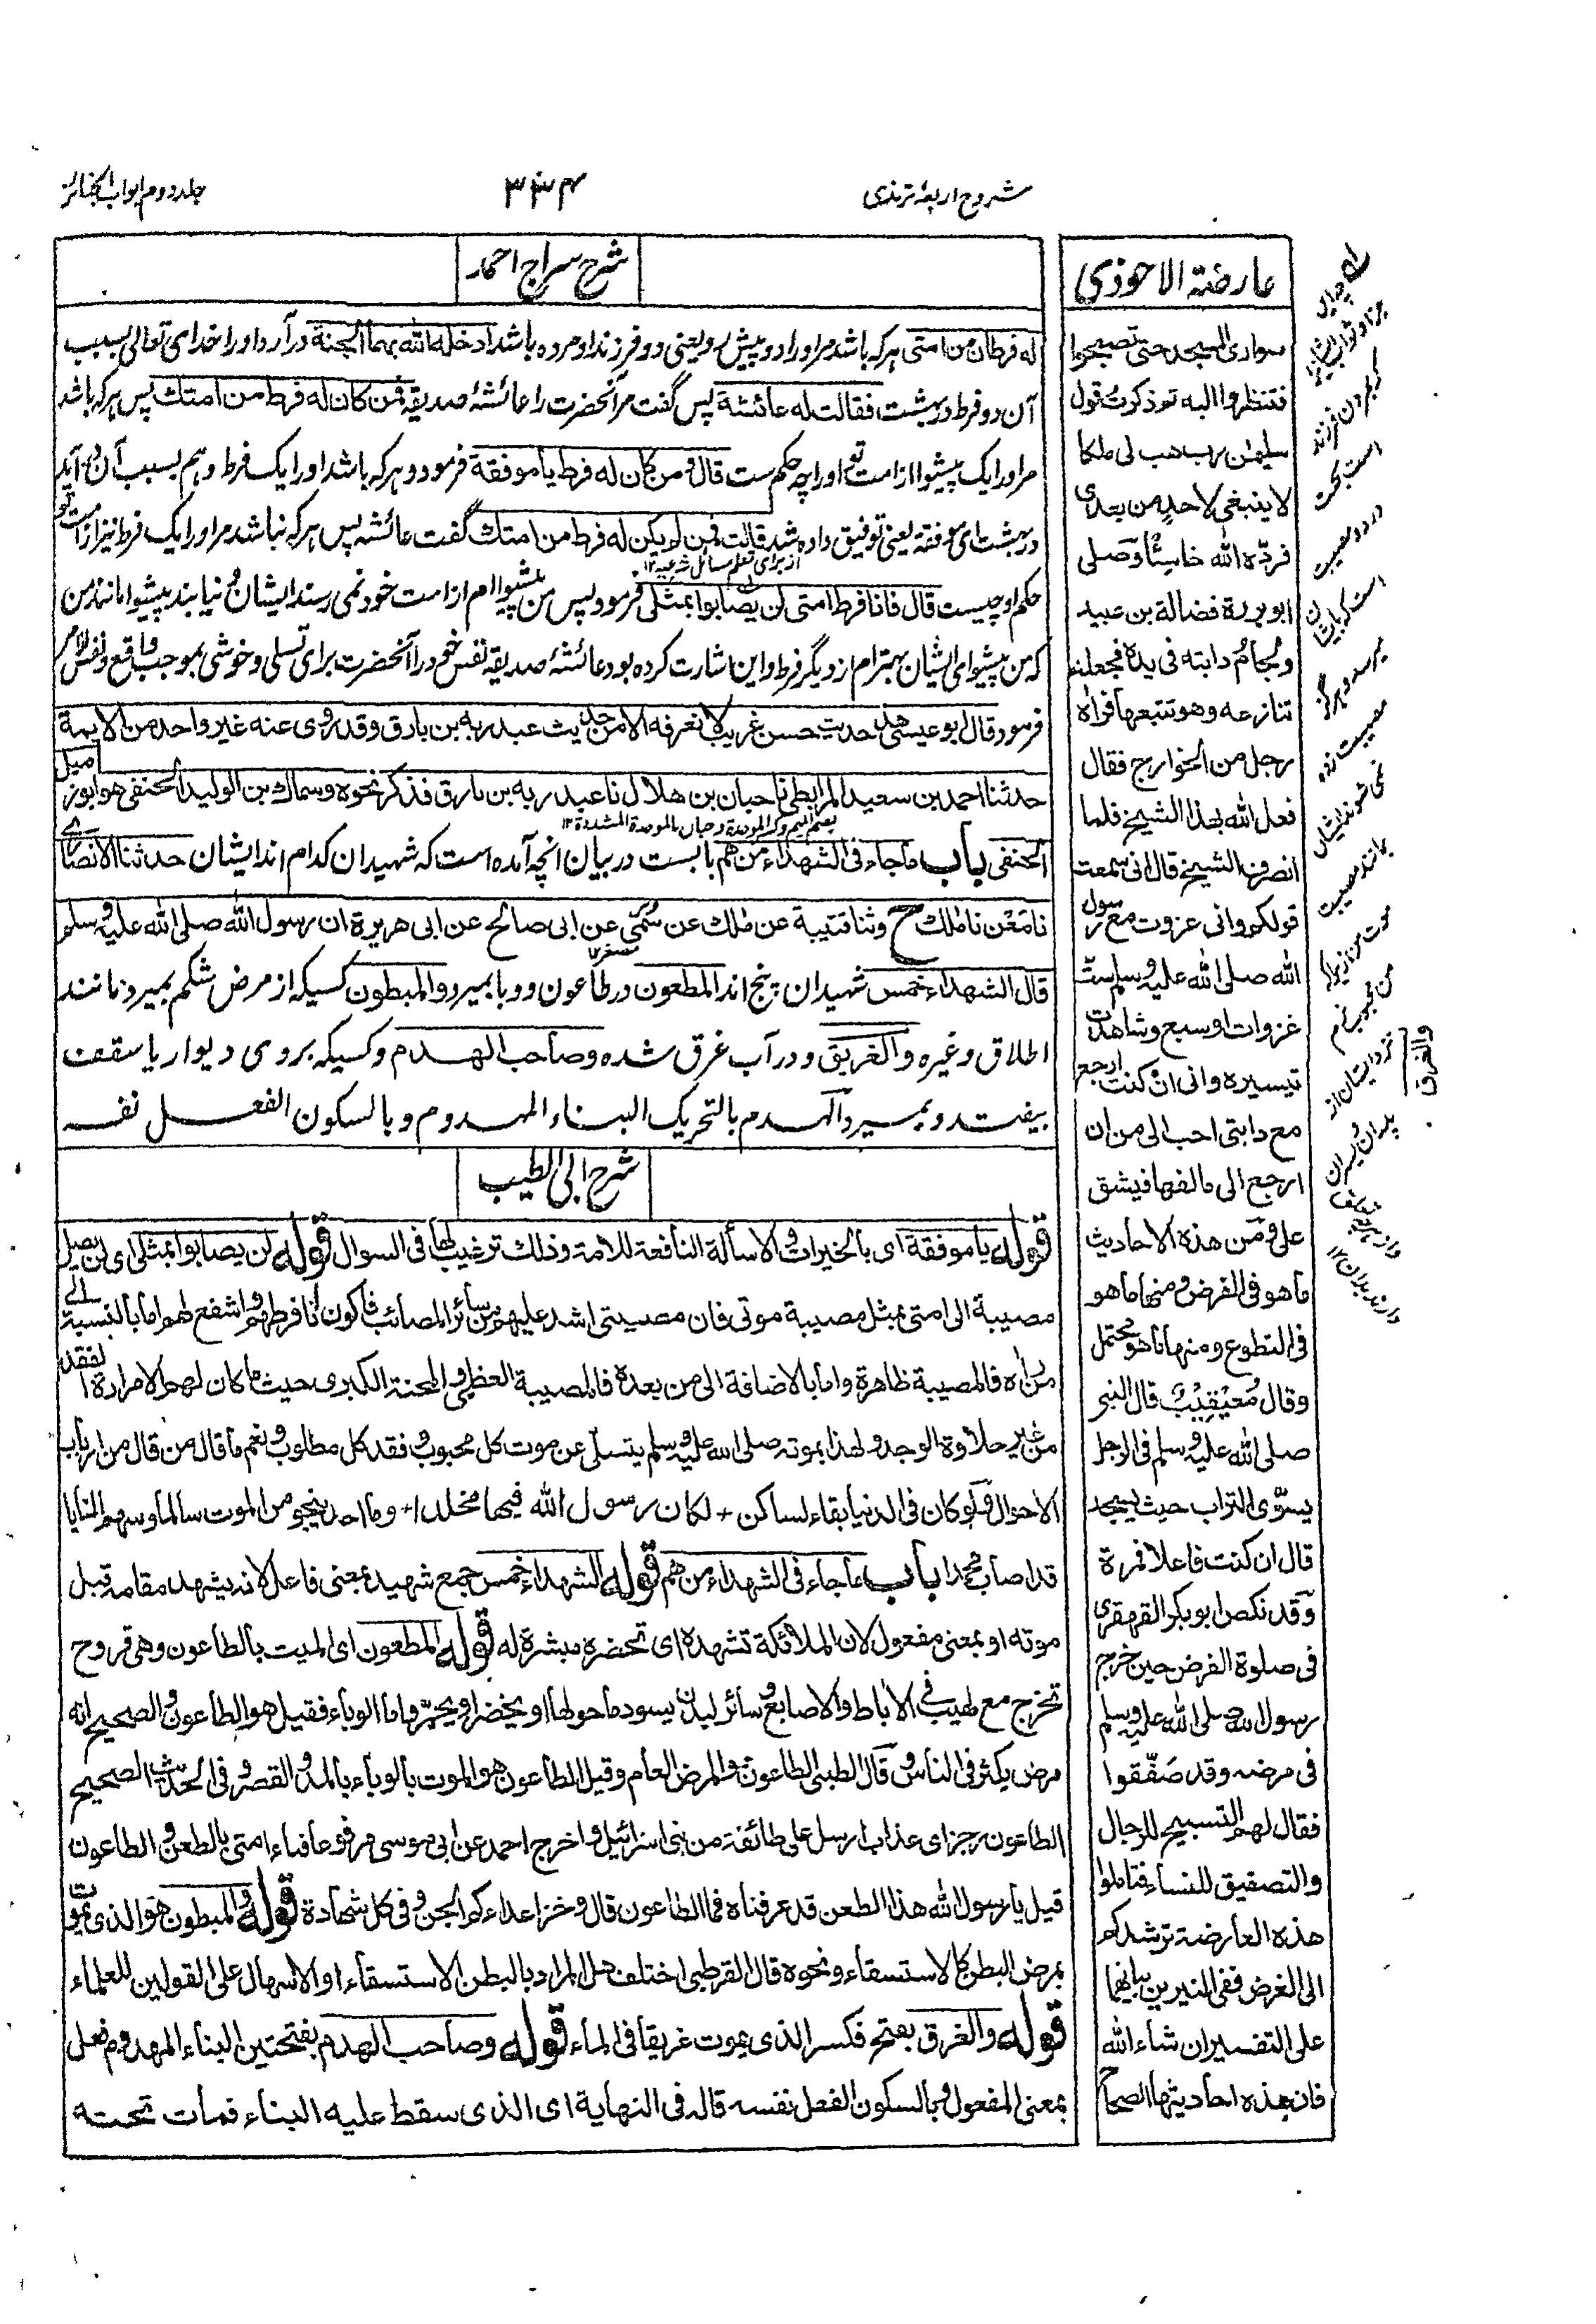 شروح اربعۂ ترمذی
۳۳۴
جلد دوم ابواب الجنائز
عارضۃ الاحوذی
سواری المسجد حتی تصبحوا
فتنظروا الیه ثم ذکرت قول
سلیمٰن رب هب لی ملکا
لا ینبغی لاحد من بعدی
فردّه الله خاسئًا وصلی
ابو برزة فضالة بن عبید
ولجام دابته فی یده فجعلت
تنازعه وهو تتبعها فراٰه
رجل من الخوارج فقال
فعل الله بهذا الشیخ فلما
انصرف الشیخ قال انی سمعت
قولکم وانی غزوت مع رسول
الله صلی الله علیه وسلم ست
غزوات او سبع وشاهدت
تیسیره وانی ان کنت ارجع
مع دابتی احب الی من ان
ارجع الی مالفها فیشق
علی ومن هذه الاحادیث
ما هو فی الفرض ومنها ما هو
فی التطوع ومنها ما هو محتمل
وقال مُعَیْقِیْبٌ قال النبی
صلی الله علیه وسلم فی الرجل
یسوّی التراب حیث یسجد
قال ان کنت فاعلا فمرة
وقد نکص ابو بکر القهقری
فی صلوة الفرض حین خرج
رسول الله صلی الله علیه وسلم
فی مرضه وقد صَفّقوا
فقال لهم التسبیح للرجال
والتصفیق للنساء فتاملوا
هذه العارضة ترشدکم
الی الغرض ففی النیرین بیانهما
علی التفسیر ان شاء الله
فان هذه احادیثها الصحاح
شرح سراج احمد
له فرطان من امتی هر که باشد مر او را دو پیش رو یعنی دو فرزند او مرده باشد ادخله الله بهما الجنة در آرد او را خدای تعالی بسبب
آن دو فرط در بهشت فقالت له عائشة پس گفت مر آنحضرت را عائشۂ صدیقه فمن کان له فرط من امتك پس هر که باشد
مر او را یک پیشوا از امت تو او را چه حکم ست قال ومن کان له فرط یا موفقة فرمود و هر که باشد او را یک فرط و هم بسبب آن در آید
در بهشت ای موفقه یعنی توفیق داده شد قالت فمن لم یکن له فرط من امتك گفت عائشه پس هر که نباشد مر او را یک فرط نیز از امت تو
از برای تعلم مسائل شرعیه ۱۲
حکم او چیست قال فانا فرط امتی لن یصابوا بمثلی فرمود پس من پیشوا ام از امت خود نمی رسند ایشان و نیابند پیشوا مانند من
که من پیشوای ایشان بهتر ام از دیگر فرط و این اشارت کرده بود عائشۂ صدیقه نفس خود را آنحضرت برای تسلی و خوشی بموجب واقع و نفس الامر
فرمود قال ابو عیسی هذا حدیث حسن غریب لا نعرفه الا من حدیث عبد ربه بن بارق وقد روی عنه غیر واحد من الایمة
حدثنا احمد بن سعید المرابطی نا حبان بن هلال نا عبد ربه بن بارق فذکر نحوه وسماك بن الولید الحنفی هو ابو زمیل
بضم المیم وکسر الموحدة وحبان بالموحدة المشددة ۱۲
الحنفی باب ما جاء فی الشهداء من هم بابست در بیان انچه آمده است که شهیدان کدام اند ایشان حدثنا الانصاری
نا مَعْن نا مالك ح وثنا قتیبة عن مالك عن سُمَیّ عن ابی صالح عن ابی هریرة ان رسول الله صلی الله علیه وسلم
مصغر ۱۲
قال الشهداء خمس شهیدان پنج اند المطعون در طاعون و وبا بمیرد والمبطون کسیکه از مرض شکم بمیرد مانند
اطلاق و غیره والغریق و در آب غرق شده وصاحب الهدم و کسیکه بروی دیوار یا سقف
بیفتد و بمیرد الهدم بالتحریك البناء المهدوم وبالسکون الفعل نفسه
شرح ابی الطیب
قوله یا موفقة ای بالخیرات والاسألة النافعة للامة وذلك ترغیب لها فی السوال قوله لن یصابوا بمثلی ای لن یصل
مصیبة الی امتی بمثل مصیبة موتی فان مصیبتی اشد علیهم من سائر المصائب فاکون انا فرطهم واشفع لهم اما بالنسبة الی
من راٰه فالمصیبة ظاهرة واما بالاضافة الی من بعده فالمصیبة العظمی والمحنة الکبری حیث ما کان لهم الا مرارة الفقد
من غیر حلاوة الوجد ولهذا بموته صلی الله علیه وسلم یتسلی عن موت کل محبوب وفقد کل مطلوب ونعم ما قال من قال من ارباب
الاحوال ولو کان فی الدنیا بقاء لساکن + لکان رسول الله فیها مخلدا + وما احد ینجو من الموت سالما وسهم المنایا
قد اصاب محمدا باب ما جاء فی الشهداء من هم قوله الشهداء خمس جمع شهید بمعنی فاعل لانه یشهد مقامه قبل
موته او بمعنی مفعول لان الملائکة تشهده ای تحضره مبشرة له قوله المطعون ای المیت بالطاعون وهی قروح
تخرج مع لهیب فی الاباط والاصابع وسائر البدن یسود ما حولها او یخضر او یحمرّ واما الوباء فقیل هو الطاعون والصحیح انه
مرض یکثر فی الناس وقال الطیبی الطاعون هو المرض العام وقیل الطاعون هو الموت بالوباء بالمد والقصر وفی الحدیث الصحیح
الطاعون رجز ای عذاب ارسل علی طائفة من بنی اسرائیل واخرج احمد عن ابی موسی مرفوعا فناء امتی بالطعن والطاعون
قیل یا رسول الله هذا الطعن قد عرفناه فما الطاعون قال وخز اعداءکم الجن وفی کل شهادة قوله والمبطون هو الذی یموت
بمرض البطن کالاستسقاء ونحوه قال القرطبی اختلف هل المراد بالبطن الاستسقاء او الاسهال علی القولین للعلماء
قوله والغرق بفتح فکسر الذی یموت غریقا فی الماء قوله وصاحب الهدم بفتحتین البناء المهدوم فعل
بمعنی المفعول وبالسکون الفعل نفسه قاله فی النهایة ای الذی سقط علیه البناء فمات تحته